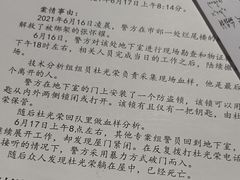 午8:14分。
案情事由：
2021年6月16日凌晨，警方在市郊一处烂尾楼的
解救了被绑架的张怀耀。
6月16日，警方对该处地下室进行了现场勘查和物证
下午18时左右，相关人员完成当日的工作之后，陆续撤
场。
技术分析组组员杜光荣负责采集现场血样，他是最后
个离开的人。
警方在地下室的门上安装了一个防盗锁，该锁可以用
匙以内外两侧锁闭或打开。该锁有且仅有一把钥匙，由杜
荣保管。
随后杜光荣回队里做血样分析。
6月17日上午8点左右，其他专案组警员回到地下室，
续展开工作，却发现屋门紧闭。在反复拨打杜光荣电话
接听的情况下，警方采用暴力方式破门而入。
随后众人发现杜光荣躺在屋中，已经死亡。